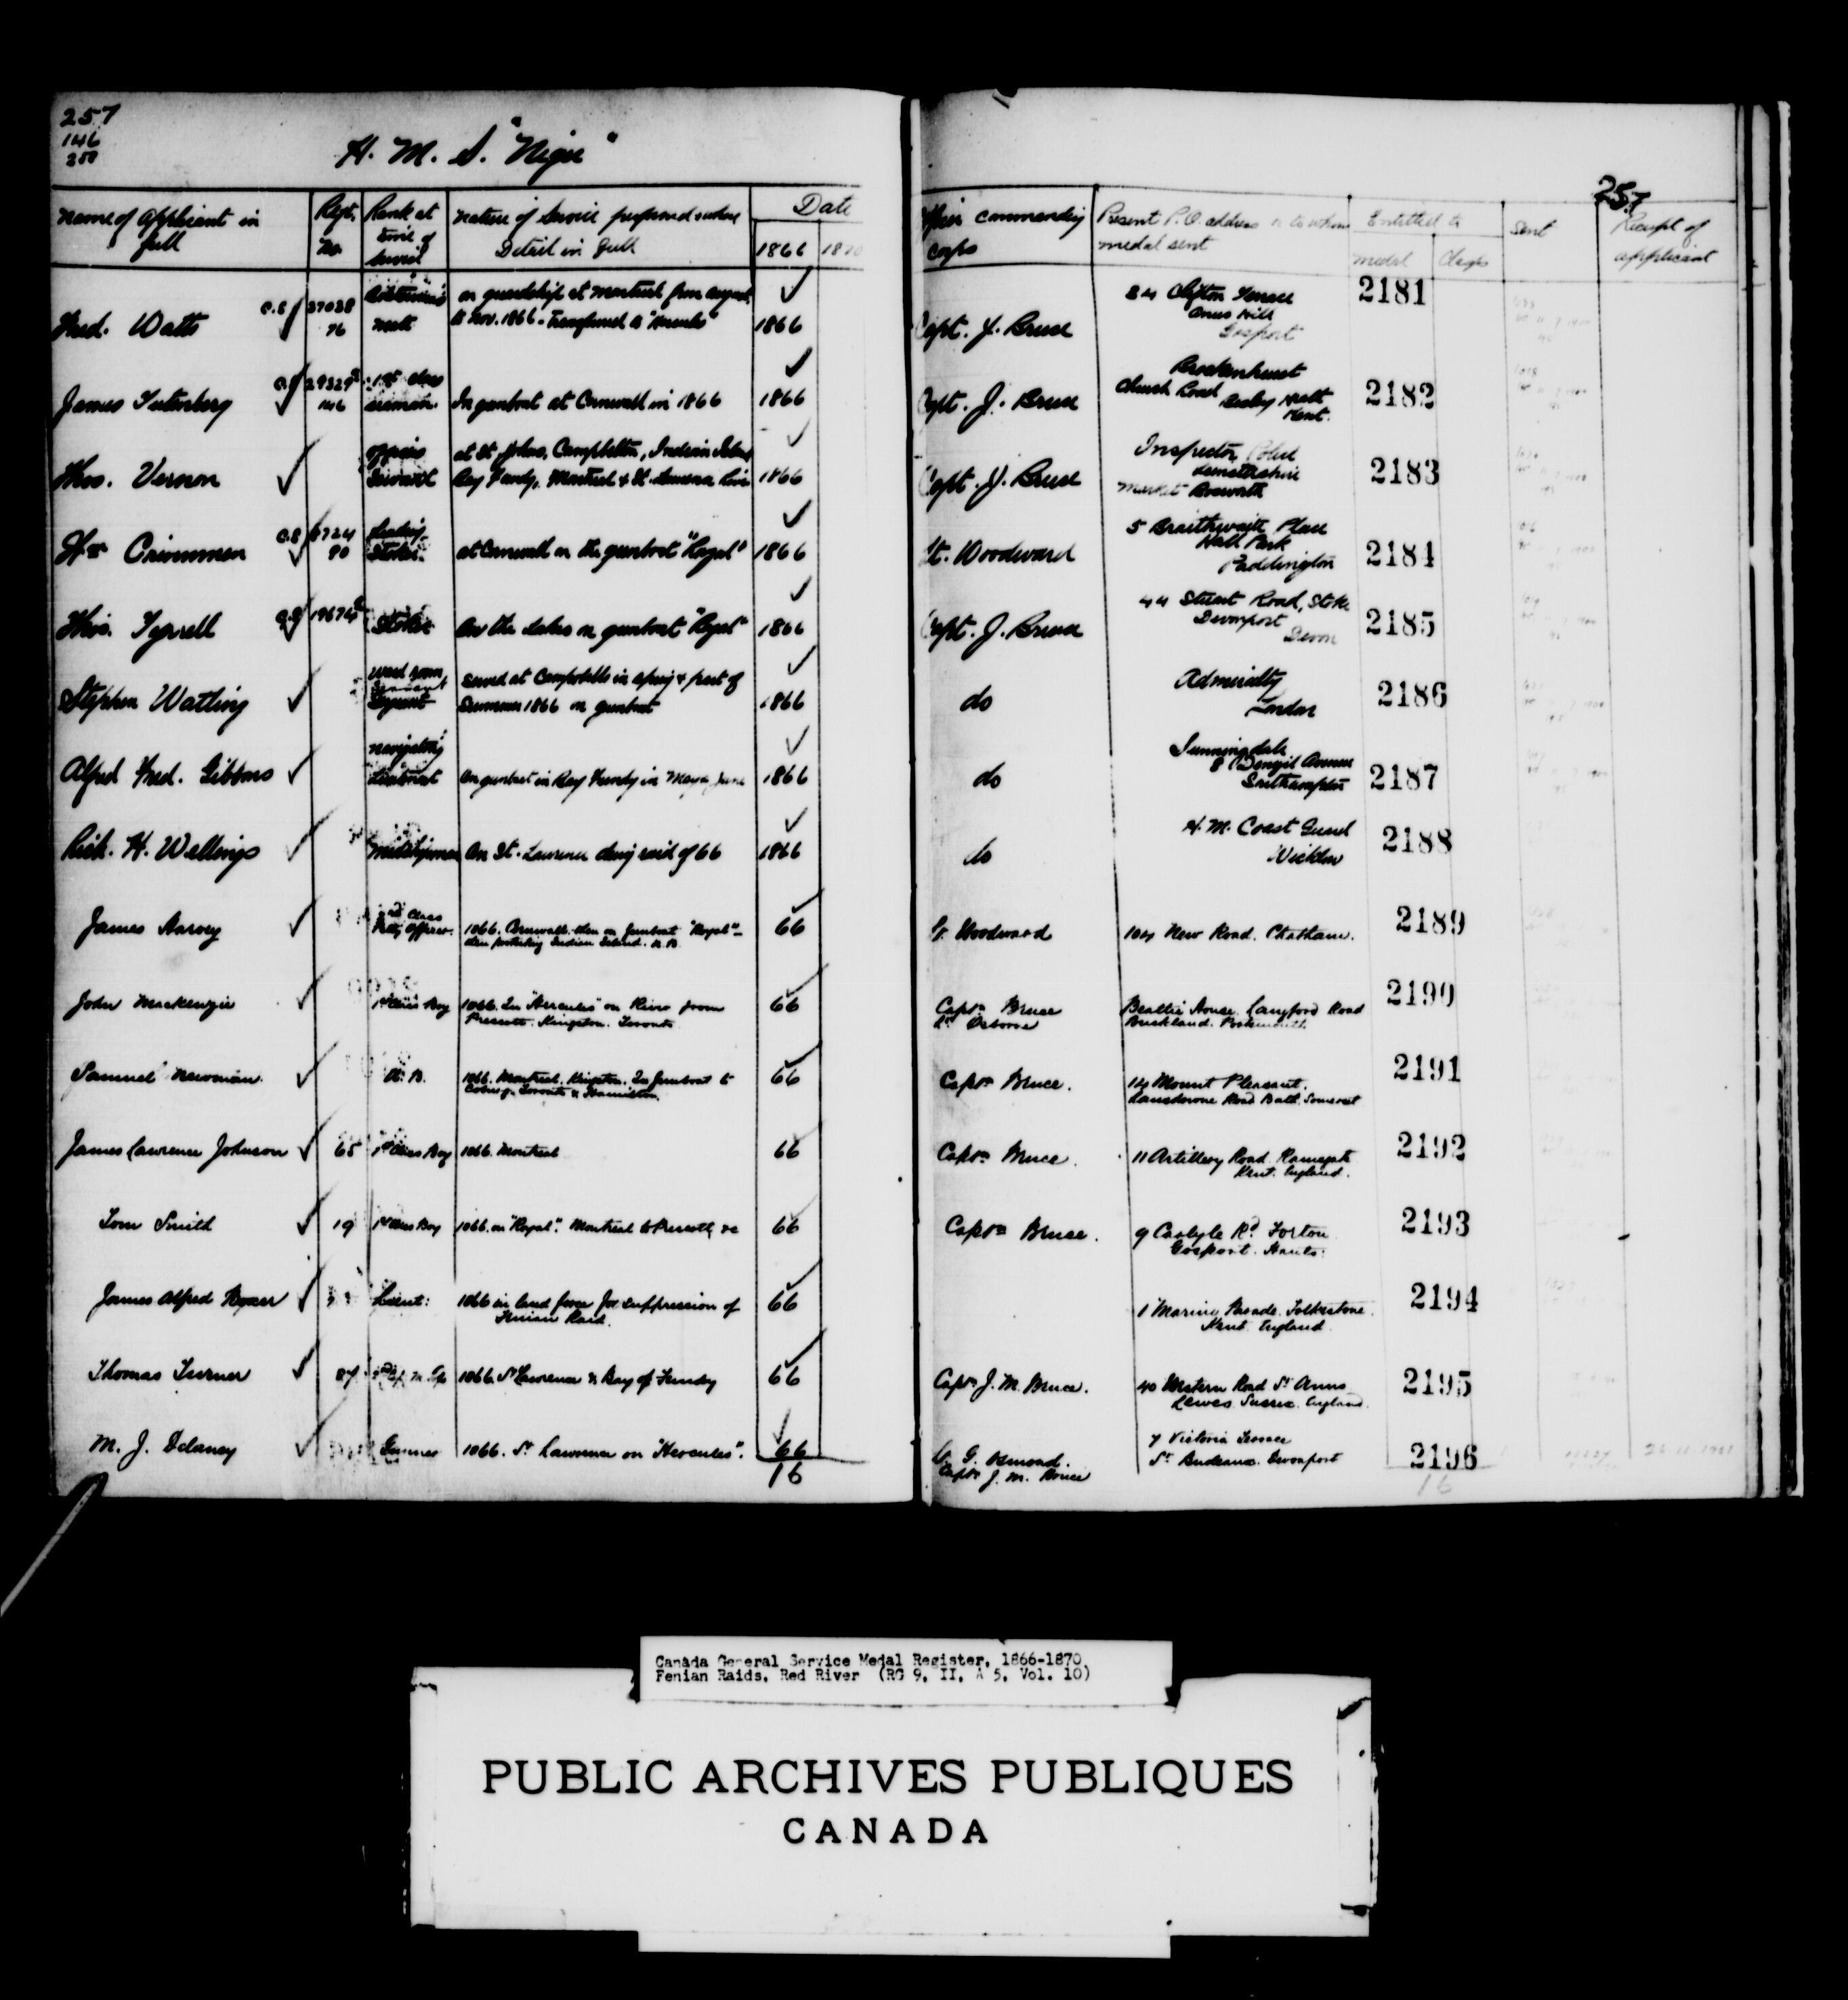 257
146
258
H. M. S. "Niger"
257
Name of applicant in full
Regt. No.
Rank at time of service
Nature of Service performed where Detail in full
Date
1866 1870
Officer Commanding Corps
Present P.O. address or to whom medal sent
Entitled to
Medal Clasps
Sent
Receipt of applicant
Fred. Watts
C.S. 37038
76
mate
on guardship at Montreal from August
to Nov. 1866 - Transferred to "Hercules"
1866
Capt. J. Bruce
84 Clifton Terrace
Anns Hill
Gosport
2181
James
C.S.
146
1st class
seaman
In gunboat at Cornwall in 1866
1866
Capt. J. Bruce
Brockenhurst
Church Road Bexley Heath
Kent.
2182
Thos. Vernon
Officers
Servant
at St. Johns, Campbellton, Indian Island
Bay Fundy, Montreal & St. Lawrence River
1866
Capt. J. Bruce
Inspector Police
Leicestershire
Market Bosworth
2183
Wm Crimmen
C.S. 6724
80
Leading
Stoker
at Cornwall on the gunboat "Royal"
1866
Lt. Woodward
5 Braithwaite Place
Hall Park
Paddington
2184
Thos. Tyrrell
C.S.
Stoker
On the Lakes on gunboat "Royal"
1866
Capt. J. Bruce
44 Stuart Road, Stoke
Devonport
Devon
2185
Stephen Watling
Ward room
Servant
Served at Campobello in spring & part of
Summer 1866 on gunboat
1866
do
Admiralty
London
2186
Alfred Fred. Gibbons
Navigating
Lieutenant
On gunboat in Bay Fundy in May & June
1866
do
Sunningdale
8 Avenue
Southampton
2187
Rich. H. Wellings
Midshipman
On St. Lawrence during raid of 66
1866
do
H. M. Coast Guard
Wicklow
2188
James Harvey
Class
Petty Officer
1866. Cornwall. then on Gunboat "Royal" -
then protecting Indian Island. N.B.
66
Lt. Woodward
104 New Road. Chatham.
2189
John Mackenzie
1st Class Boy
1866. In "Hercules" on River from
Prescott. Kingston. Toronto
66
Captn Bruce
Lt Osborne
Beattie House. Langford Road
Buckland. Portsmouth.
2190
Samuel Newman
A. B.
1866. Montreal. Kingston. In Gunboat to
Cobourg. Toronto & Hamilton.
66
Captn Bruce.
14 Mount Pleasant.
Lansdowne Road Bath. Somerset
2191
James Lawrence Johnson
65
1st Class Boy
1866. Montreal
66
Captn Bruce.
11 Artillery Road. Ramsgate
Kent. England.
2192
Tom Smith
19
1st Class Boy
1866. on "Royal". Montreal to Prescott &c
66
Captn Bruce.
9 Carlyle Rd. Forton
Gosport. Hants.
2193
James Alfred
Lieut:
1866 in land force for suppression of
Fenian Raid.
66
1 Marine Parade. Folkestone.
Kent. England.
2194
Thomas Turner
87
1866. St Lawrence & Bay of Fundy
66
Captn J. M. Bruce.
40 Western Road St Anns
Lewes. Sussex. England.
2195
M. J. Delaney
Gunner
1866. St Lawrence on "Hercules".
66
Captn J. M. Bruce
7 Victoria Terrace
St Budeaux. Devonport
2196
16
16
Canada General Service Medal Register, 1866-1870,
Fenian Raids, Red River (RG 9, II, A 5, Vol. 10)
PUBLIC ARCHIVES PUBLIQUES
CANADA